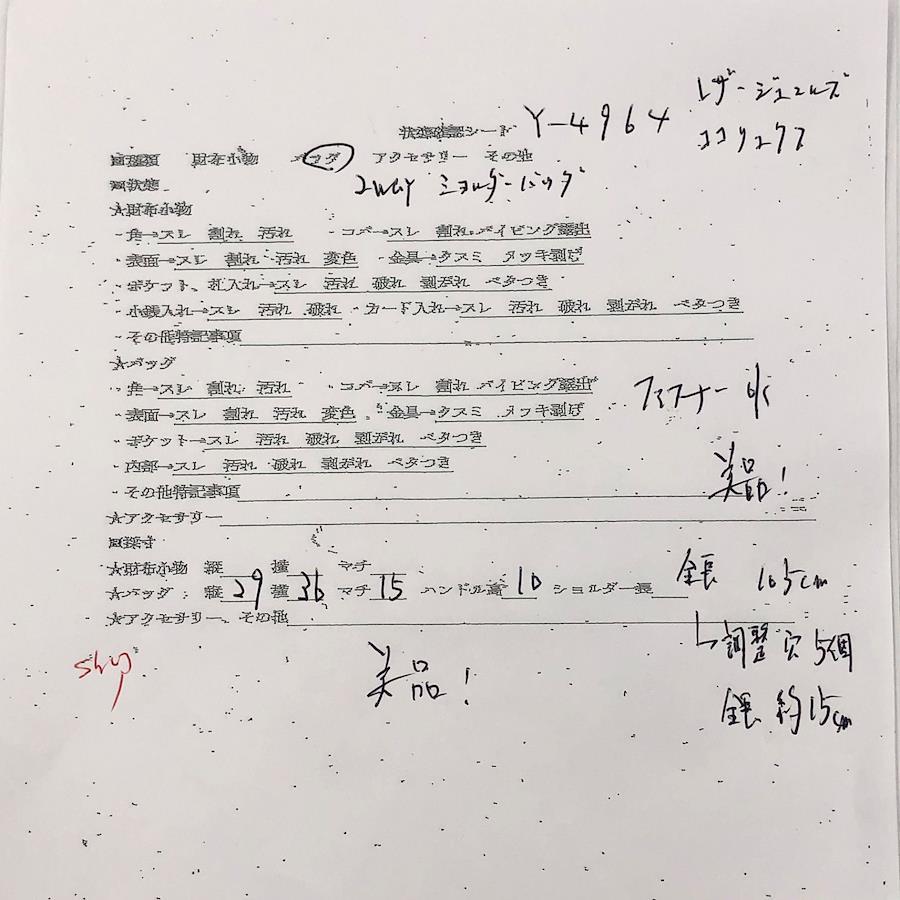 状態確認シート Y-4964
レザージュエルズ
ココリュクス
■種類 財布小物 バッグ アクセサリー その他
■状態 2WAY ショルダーバッグ
★財布小物
・角→スレ 割れ 汚れ ・コバ→スレ 割れ パイピング露出
・表面→スレ 割れ 汚れ 変色 ・金具→クスミ メッキ剥げ
・ポケット、札入れ→スレ 汚れ 破れ 剥がれ ベタつき
・小銭入れ→スレ 汚れ 破れ ・カード入れ→スレ 汚れ 破れ 剥がれ ベタつき
・その他特記事項
★バッグ
・角→スレ 割れ 汚れ ・コバ→スレ 割れ パイピング露出
・表面→スレ 割れ 汚れ 変色 ・金具→クスミ メッキ剥げ
ファスナー ok
・ポケット→スレ 汚れ 破れ 剥がれ ベタつき
・内部→スレ 汚れ 破れ 剥がれ ベタつき
美品!
・その他特記事項
★アクセサリー
■採寸
★財布小物 縦 横 マチ
★バッグ: 縦29 横36 マチ15 ハンドル高10 ショルダー長 全長 105cm
★アクセサリー、その他
↳調整穴 5個
全長 約15cm
美品!